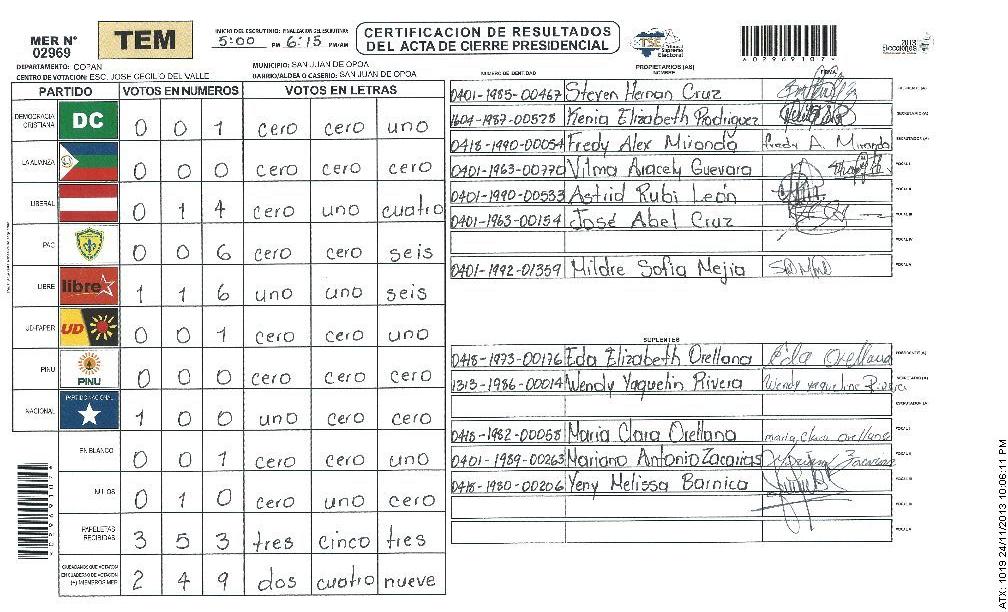 MER Nº
02969
TEM
INICIO DEL ESCRUTINIO: FINALIZACIÓN DEL ESCRUTINIO:
5:00 PM 6:15 PM/AM
CERTIFICACION DE RESULTADOS
DEL ACTA DE CIERRE PRESIDENCIAL
TSE
Tribunal
Supremo
Electoral
02969107
2013
Elecciones
DEPARTAMENTO: COPAN
MUNICIPIO: SAN JUAN DE OPOA
CENTRO DE VOTACION: ESC. JOSE CECILIO DEL VALLE
BARRIO/ALDEA O CASERIO: SAN JUAN DE OPOA
PARTIDO VOTOS EN NUMEROS VOTOS EN LETRAS
DEMOCRACIA CRISTIANA DC 0 0 1 cero cero uno
LA ALIANZA 0 0 0 cero cero cero
LIBERAL 0 1 4 cero uno cuatro
PAC 0 0 6 cero cero seis
LIBRE libre 1 1 6 uno uno seis
UD-FAPER UD 0 0 1 cero cero uno
PINU PINU 0 0 0 cero cero cero
NACIONAL PARTIDO NACIONAL 1 0 0 uno cero cero
EN BLANCO 0 0 1 cero cero uno
NULOS 0 1 0 cero uno cero
PAPELETAS RECIBIDAS 3 5 3 tres cinco tres
CIUDADANOS QUE VOTARON EN CUADERNO DE VOTACION (+) MIEMBROS MER 2 4 9 dos cuatro nueve
NUMERO DE IDENTIDAD PROPIETARIOS (AS) NOMBRE
0401-1985-00467 Steven Hernan Cruz
1604-1987-00528 Kenia Elizabeth Rodriguez SECRETARIO (A)
0418-1990-00054 Fredy Alex Miranda Fredy A. Miranda ESCRUTADOR (A)
0401-1963-00770 Vilma Aracely Guevara VOCAL I
0401-1990-00533 Astrid Rubi León VOCAL II
0401-1963-00154 José Abel Cruz VOCAL III
VOCAL IV
0401-1992-01359 Mildre Sofia Mejia VOCAL V
SUPLENTES
0418-1973-00176 Eda Elizabeth Orellana Eda Orellana PRESIDENTE (A)
1313-1986-00014 Wendy Yaquelin Rivera Wendy Yaqueline Rivera SECRETARIO (A)
ESCRUTADOR (A)
0418-1982-00058 Maria Clara Orellana maria, Clara orellana VOCAL I
0401-1989-00263 Mariano Antonio Zacarias VOCAL II
0418-1980-00206 Yeny Melissa Barnica VOCAL III
VOCAL V
ATX: 1019 24/11/2013 10:06:11 PM